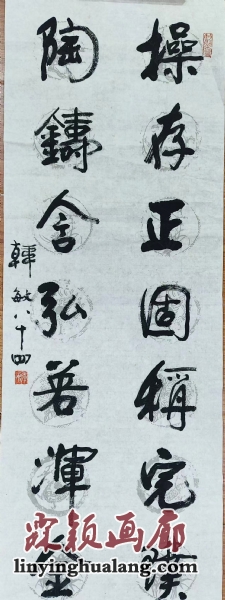 操存正固稱完璞
陶鑄含弘若渾金
韓敏八十四
霖颖画廊
linyinghualang.com